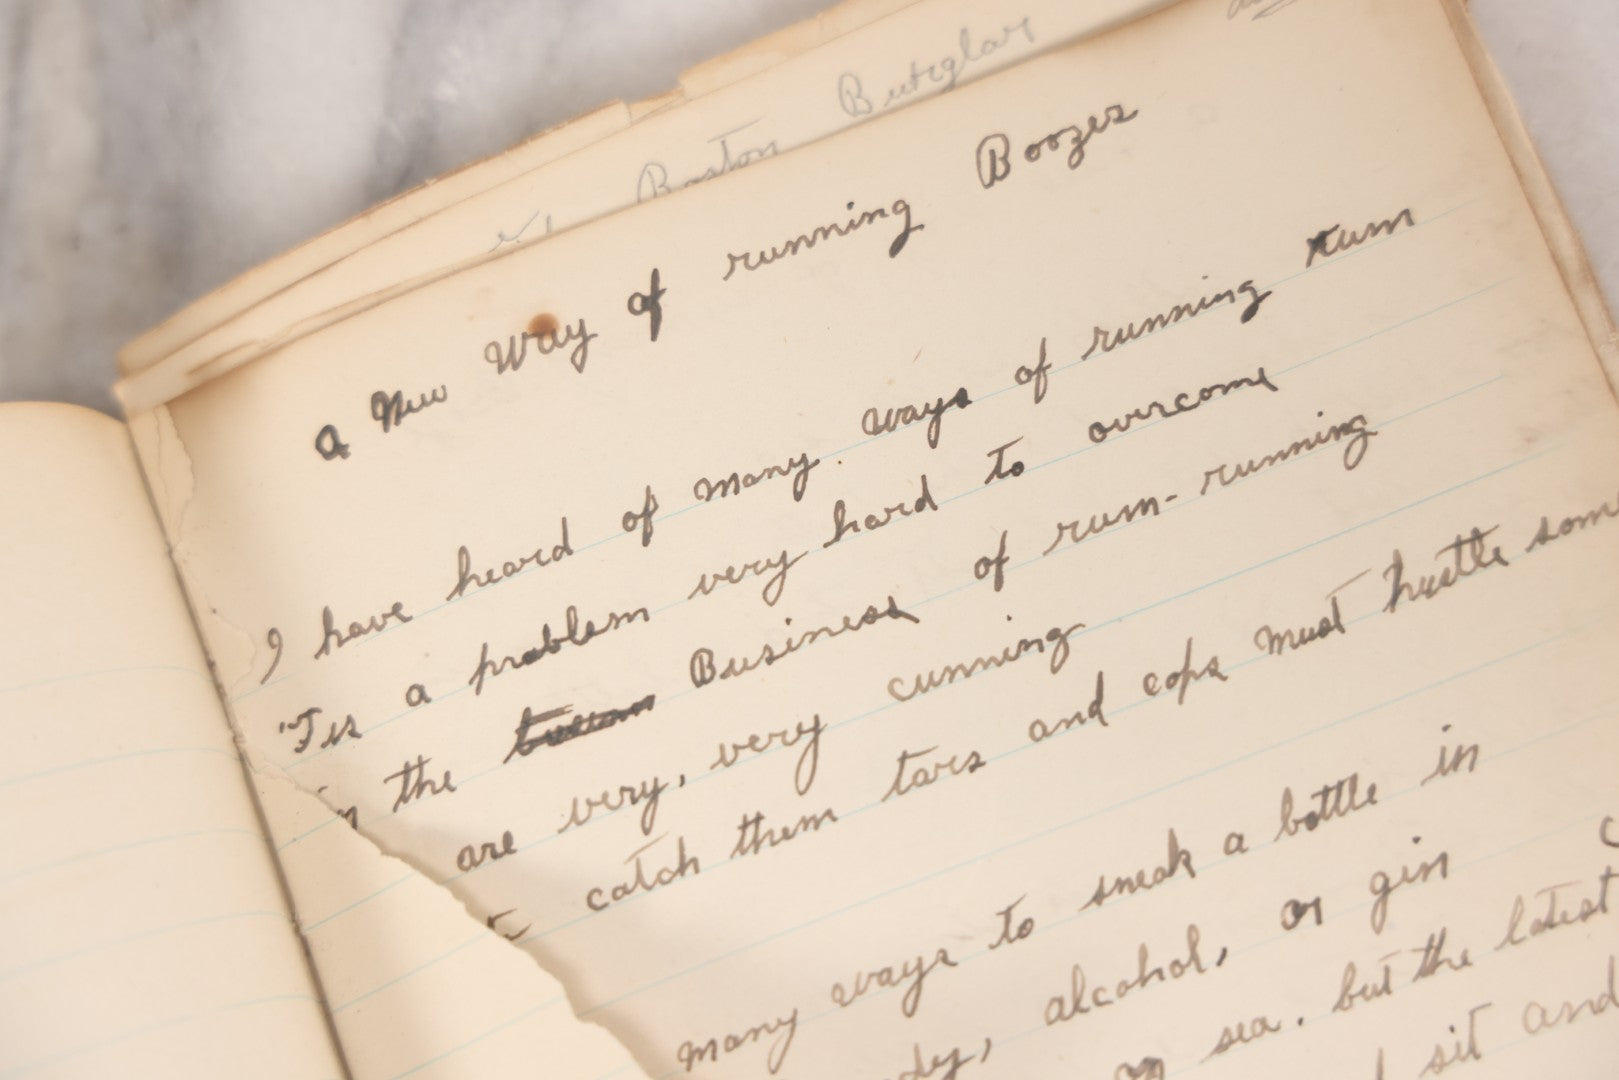 Boston Burglar
A New Way of running Boozes
I have heard of many ways of running rum
'Tis a problem very hard to overcome
in the Business of rum-running
are very, very cunning
catch them tars and cops must hustle some
many ways to sneak a bottle in
alcohol, or gin
on sea. but the latest
sit and